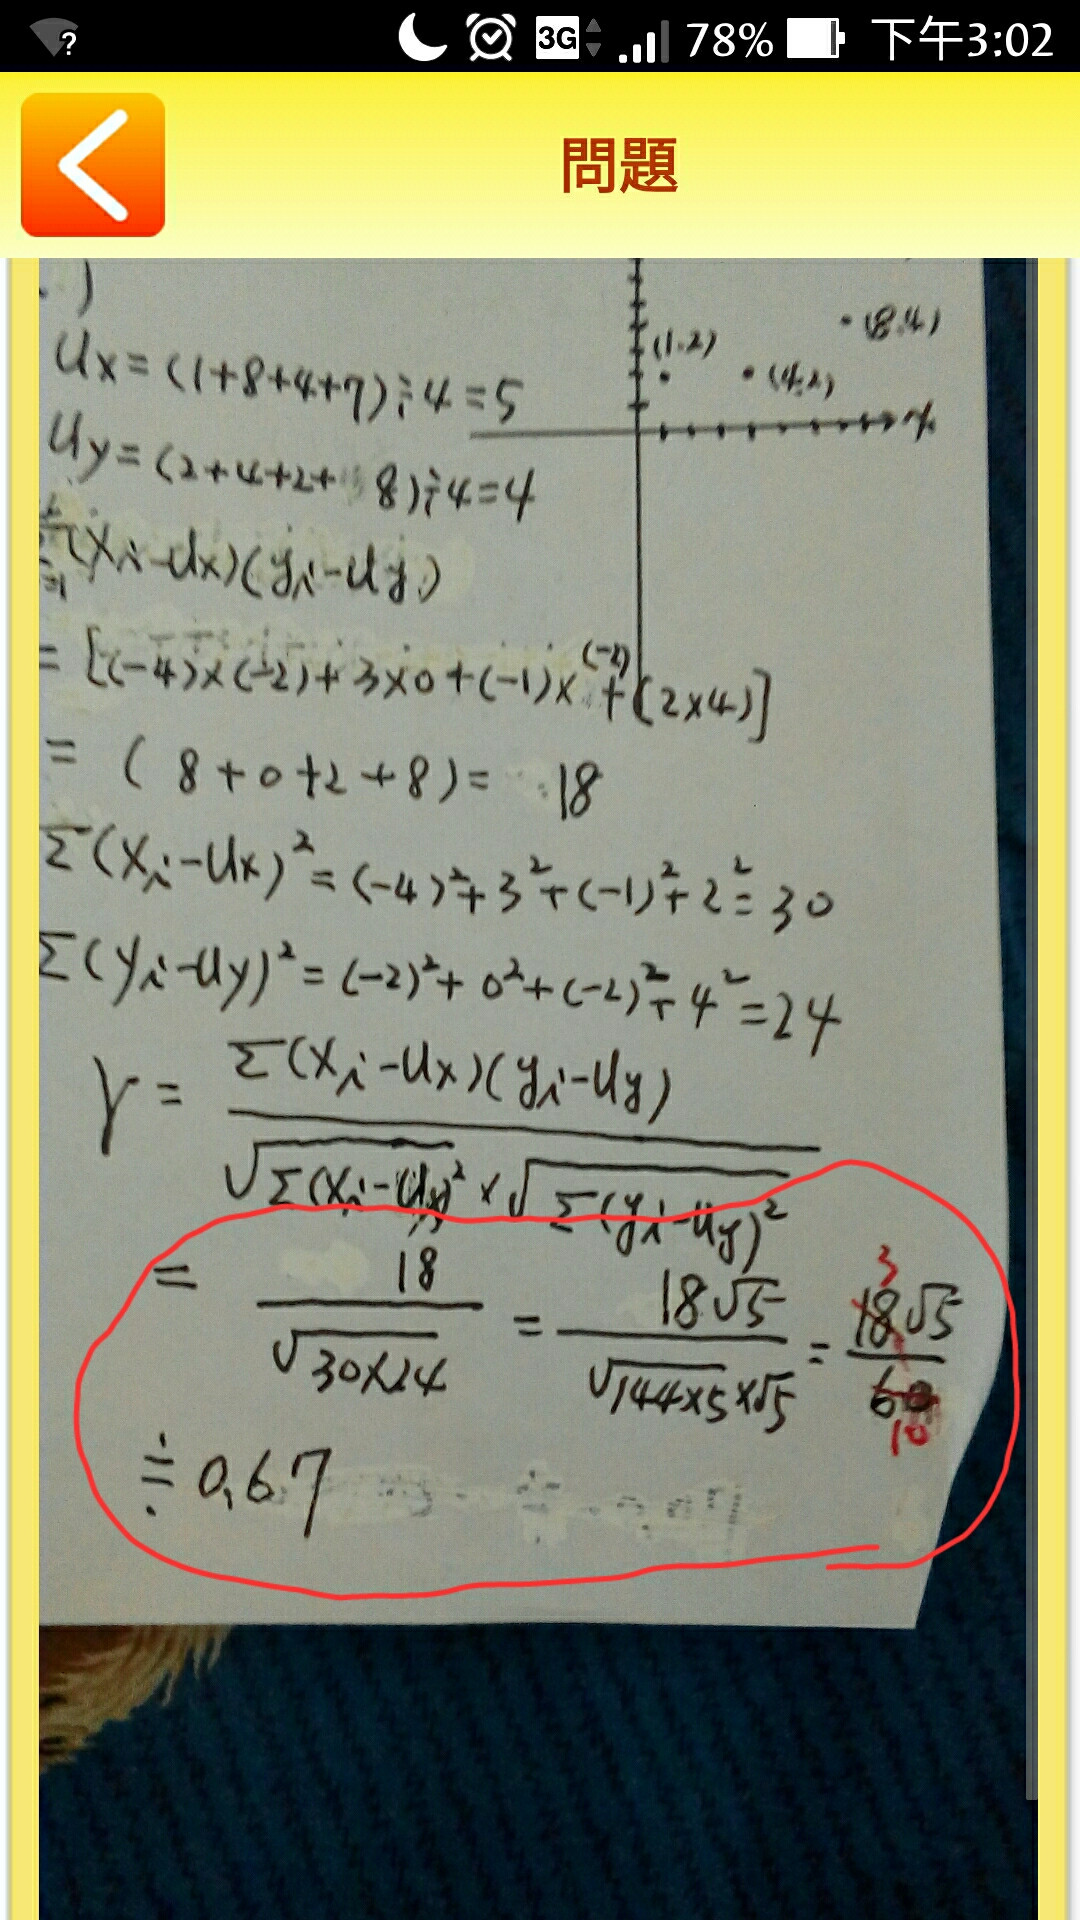 ? 3G 78% 下午3:02
問題
. )
Ux=(1+8+4+7)÷4=5
Uy=(2+4+2+ 8)÷4=4
(1.2)
(4.2)
(8.4)
x
Σ(Xi-Ux)(yi-Uy)
i=1
= [(-4)×(-2)+3×0+(-1)×(-2)+(2×4)]
= (8+0+2+8)= 18
Σ(Xi-Ux)²=(-4)²+3²+(-1)²+2²=30
Σ(yi-Uy)²=(-2)²+0²+(-2)²+4²=24
γ= Σ(Xi-Ux)(yi-Uy)
√Σ(Xi-Ux)²×√Σ(yi-Uy)²
= 18/√30×24 = 18√5/√144×5×√5 = 18√5/60
3
10
≒0.67